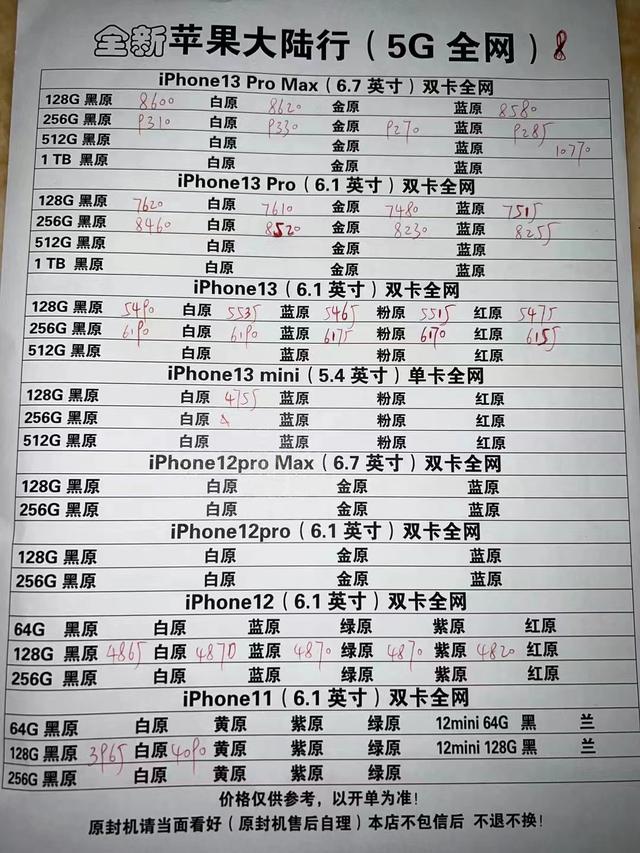 全新苹果大陆行（5G 全网）8
iPhone13 Pro Max（6.7 英寸）双卡全网
128G 黑原 8600 白原 8620 金原 蓝原 8580
256G 黑原 9310 白原 9330 金原 9270 蓝原 9285
512G 黑原 白原 金原 蓝原 10770
1 TB 黑原 白原 金原 蓝原
iPhone13 Pro（6.1 英寸）双卡全网
128G 黑原 7620 白原 7610 金原 7480 蓝原 7515
256G 黑原 8460 白原 8520 金原 8230 蓝原 8255
512G 黑原 白原 金原 蓝原
1 TB 黑原 白原 金原 蓝原
iPhone13（6.1 英寸）双卡全网
128G 黑原 5490 白原 5535 蓝原 5465 粉原 5515 红原 5475
256G 黑原 6190 白原 6190 蓝原 6175 粉原 6170 红原 6155
512G 黑原 白原 蓝原 粉原 红原
iPhone13 mini（5.4 英寸）单卡全网
128G 黑原 白原 4755 蓝原 粉原 红原
256G 黑原 白原 蓝原 粉原 红原
512G 黑原 白原 蓝原 粉原 红原
iPhone12pro Max（6.7 英寸）双卡全网
128G 黑原 白原 金原 蓝原
256G 黑原 白原 金原 蓝原
iPhone12pro（6.1 英寸）双卡全网
128G 黑原 白原 金原 蓝原
256G 黑原 白原 金原 蓝原
iPhone12（6.1 英寸）双卡全网
64G 黑原 白原 蓝原 绿原 紫原 红原
128G 黑原 4865 白原 4870 蓝原 4870 绿原 4870 紫原 4820 红原
256G 黑原 白原 蓝原 绿原 紫原 红原
iPhone11（6.1 英寸）双卡全网
64G 黑原 白原 黄原 紫原 绿原 12mini 64G 黑 兰
128G 黑原 3965 白原 4090 黄原 紫原 绿原 12mini 128G 黑 兰
256G 黑原 白原 黄原 紫原 绿原
价格仅供参考，以开单为准！
原封机请当面看好（原封机售后自理）本店不包信后 不退不换！